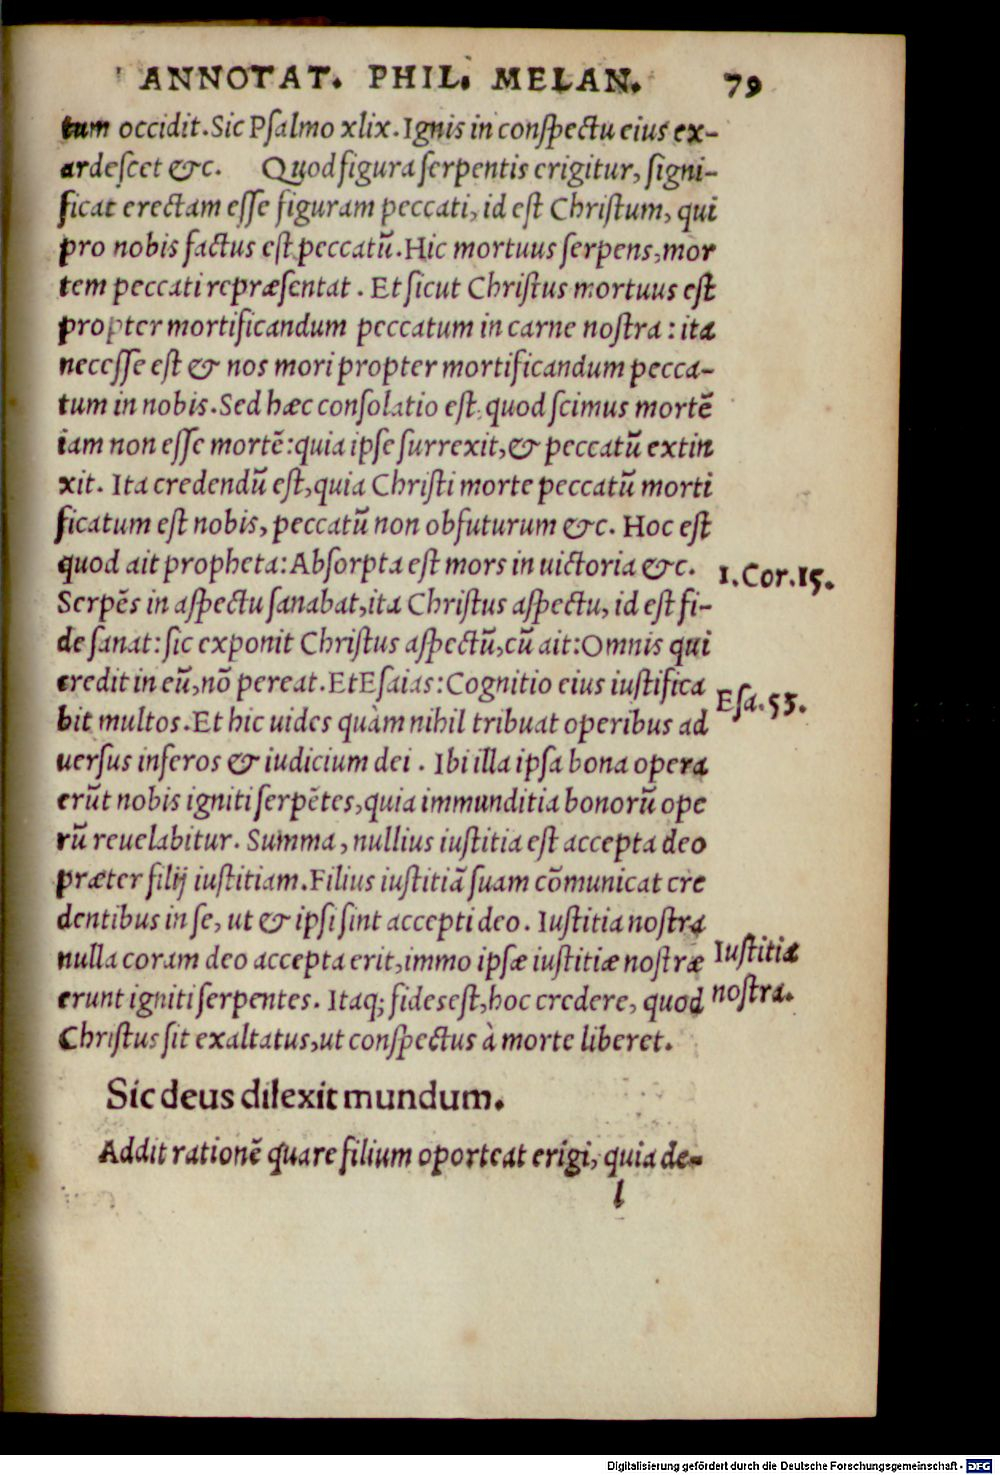 ANNOTAT. PHIL. MELAN. 79
tum occidit. Sic Psalmo xlix. Ignis in conspectu eius ex-
ardescet &c. Quod figura serpentis erigitur, signi-
ficat erectam esse figuram peccati, id est Christum, qui
pro nobis factus est peccatũ. Hic mortuus serpens, mor
tem peccati repræsentat. Et sicut Christus mortuus est
propter mortificandum peccatum in carne nostra: ita
necesse est & nos mori propter mortificandum pecca-
tum in nobis. Sed hæc consolatio est, quod scimus mortẽ
iam non esse mortẽ: quia ipse surrexit, & peccatũ extin
xit. Ita credendũ est, quia Christi morte peccatũ morti
ficatum est nobis, peccatũ non obfuturum &c. Hoc est
quod ait propheta: Absorpta est mors in uictoria &c.
1. Cor. 15.
Serpẽs in aspectu sanabat, ita Christus aspectu, id est fi-
de sanat: sic exponit Christus aspectũ, cũ ait: Omnis qui
credit in eũ, nõ pereat. Et Esaias: Cognitio eius iustifica
Esa. 53.
bit multos. Et hic uides quàm nihil tribuat operibus ad
uersus inferos & iudicium dei. Ibi illa ipsa bona opera
erũt nobis igniti serpẽtes, quia immunditia bonorũ ope
rũ reuelabitur. Summa, nullius iustitia est accepta deo
præter filij iustitiam. Filius iustitiã suam cõmunicat cre
dentibus in se, ut & ipsi sint accepti deo. Iustitia nostra
nulla coram deo accepta erit, immo ipsæ iustitiæ nostræ
Iustitiæ
erunt igniti serpentes. Itaq; fides est, hoc credere, quod
nostra.
Christus sit exaltatus, ut conspectus à morte liberet.
Sic deus dilexit mundum.
Addit rationẽ quare filium oporteat erigi, quia de-
l
Digitalisierung gefördert durch die Deutsche Forschungsgemeinschaft - DFG